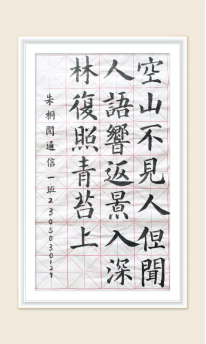 空山不見人但聞
人語響返景入深
林復照青苔上
朱桐閲通信一班2305030129